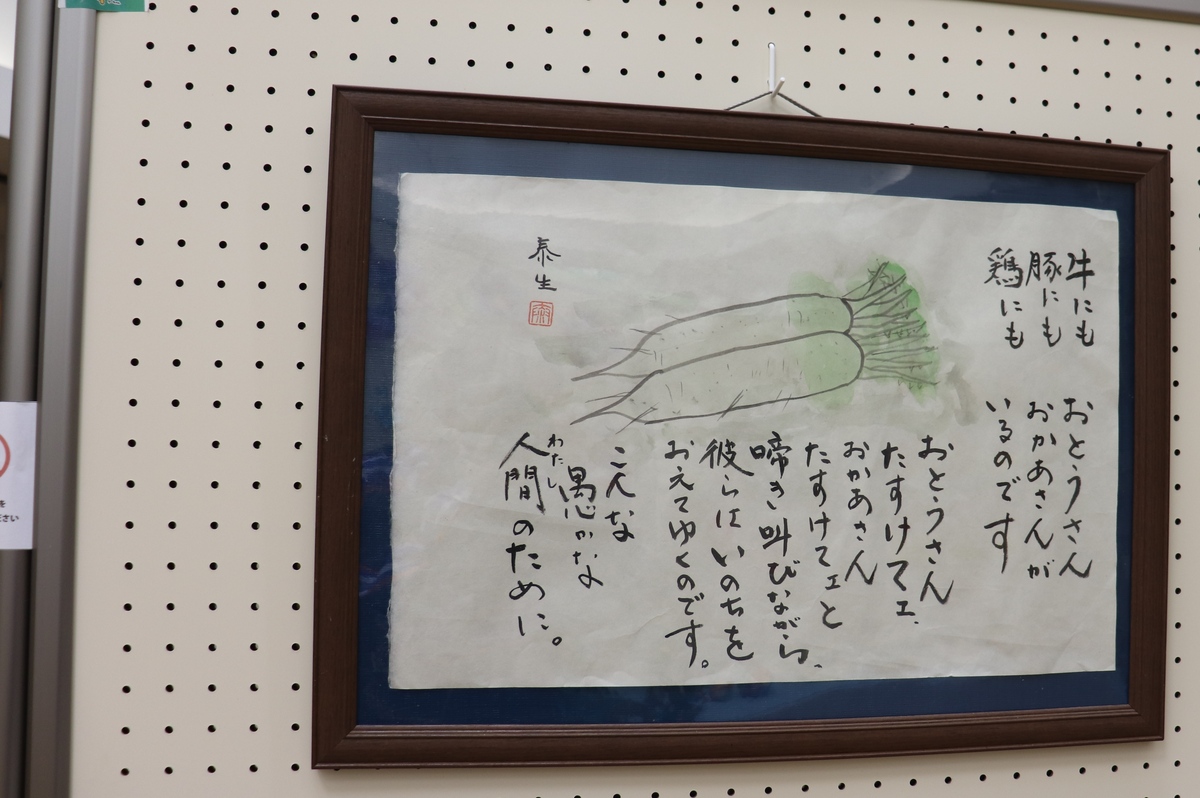 牛にも
豚にも
鶏にも
おとうさん
おかあさんが
いるのです
おとうさん
たすけてェ、
おかあさん
たすけてェと
啼き叫びながら、
彼らはいのちを
おえてゆくのです。
こんな
愚かな
わたし
人間のために。
泰生
を
ださい